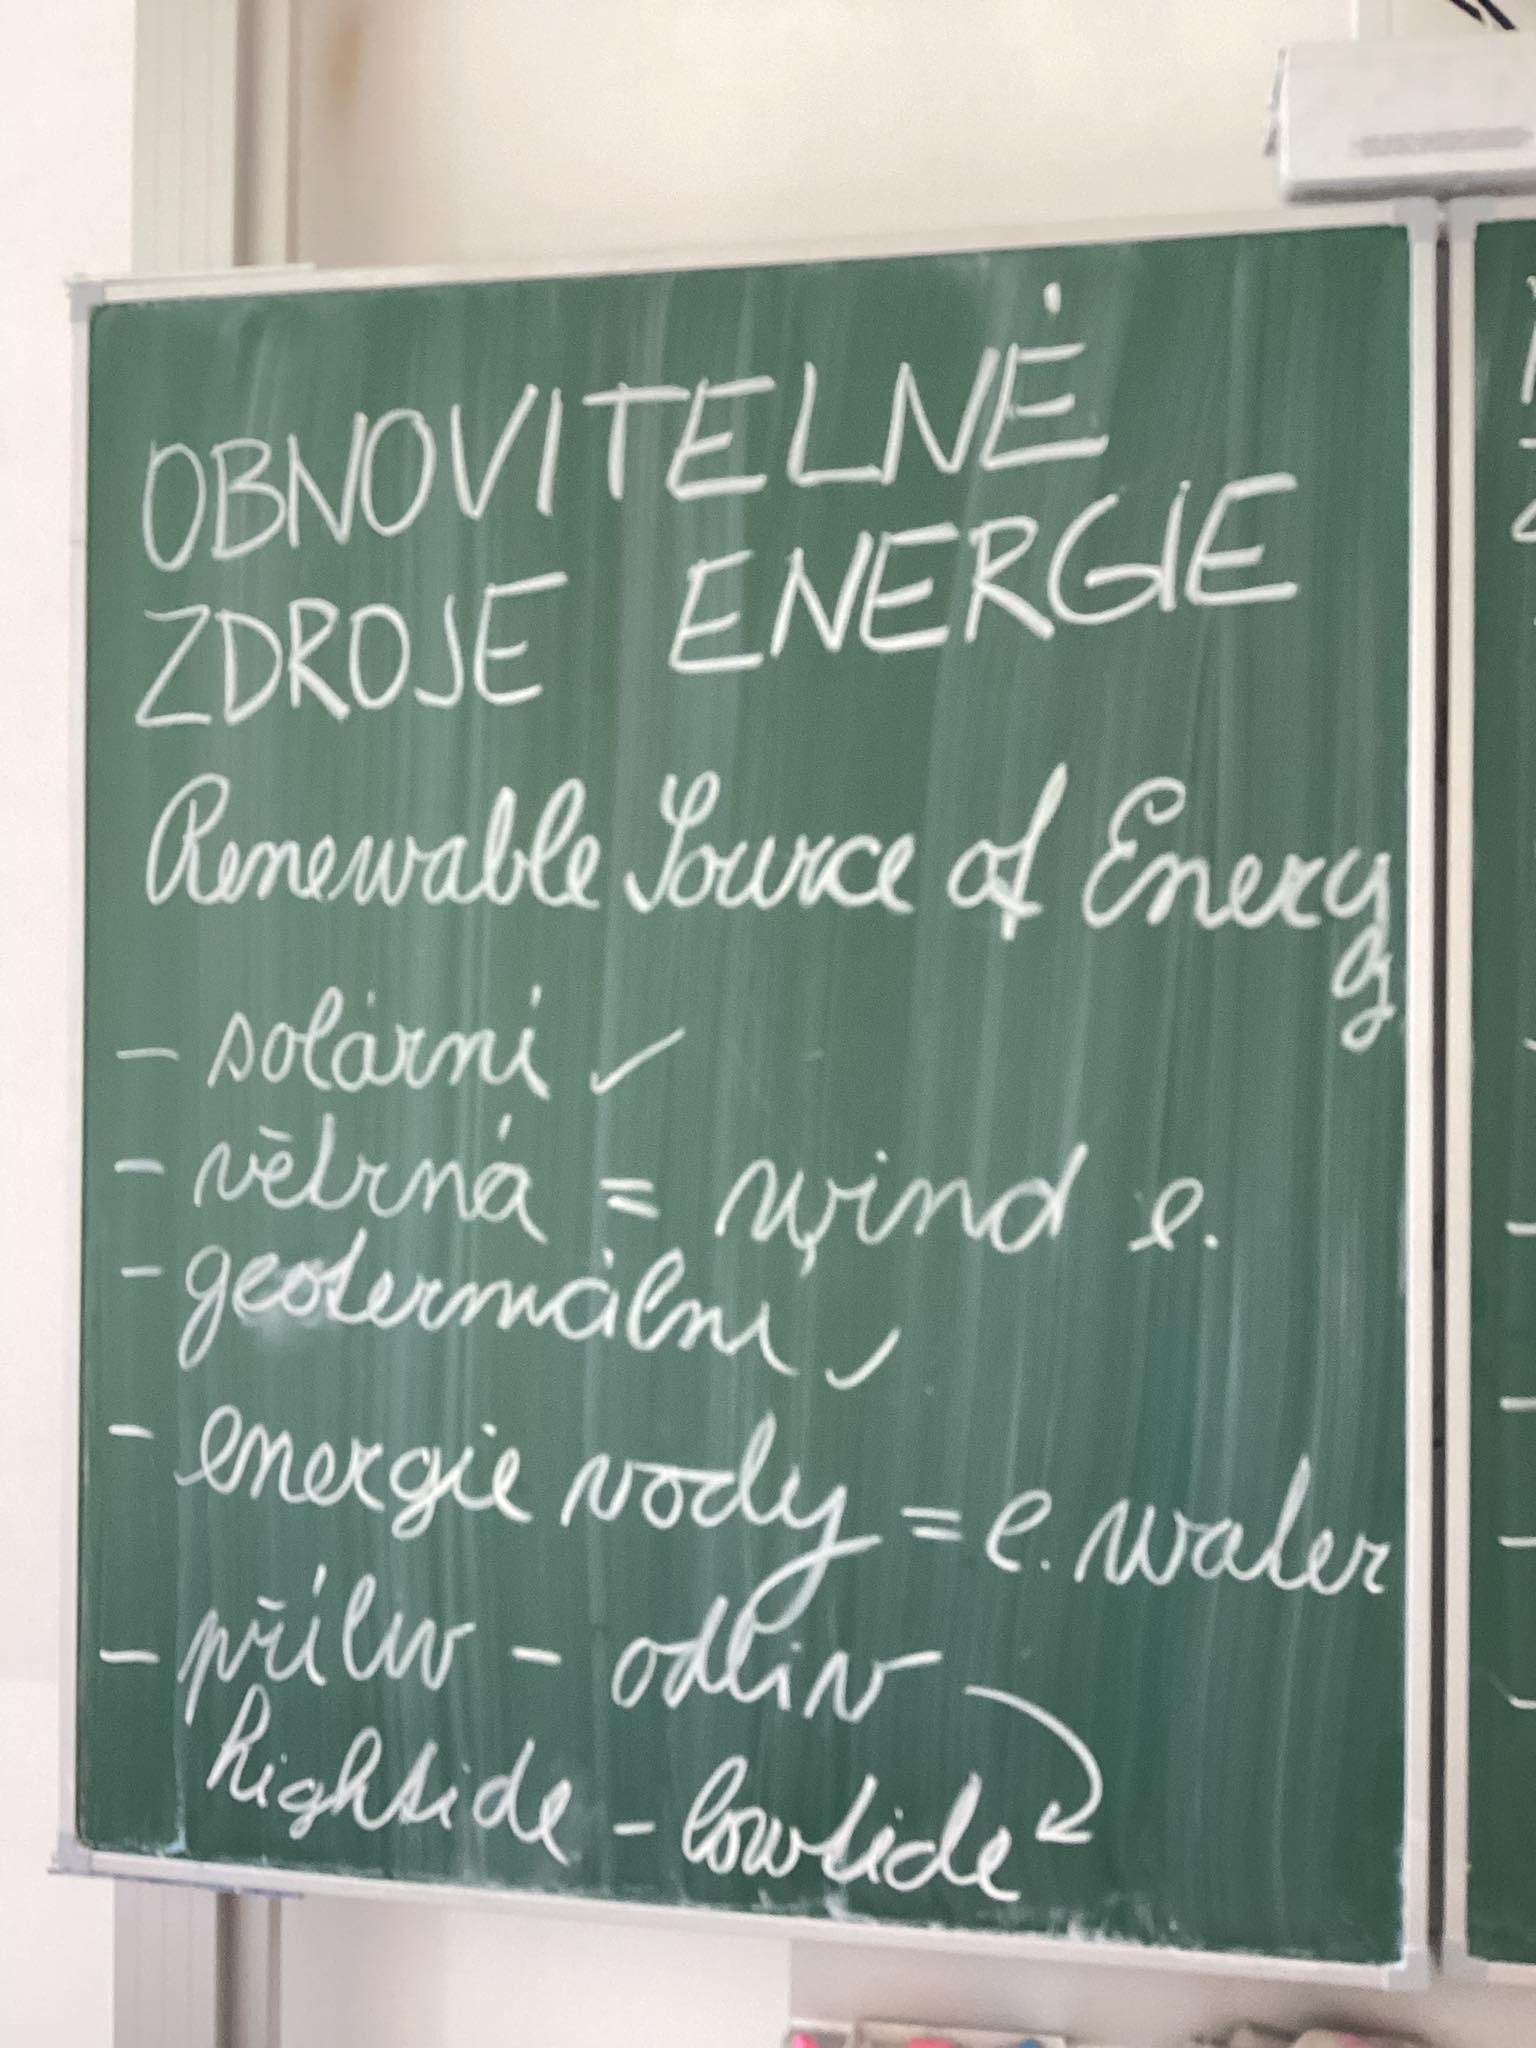 OBNOVITELNÉ
ZDROJE ENERGIE
Renewable Source of Energ
gy
- solární ✓
- větrná = wind e.
- geotermální ✓
- energie vody = e. water
- příliv - odliv
hightide - lowtide